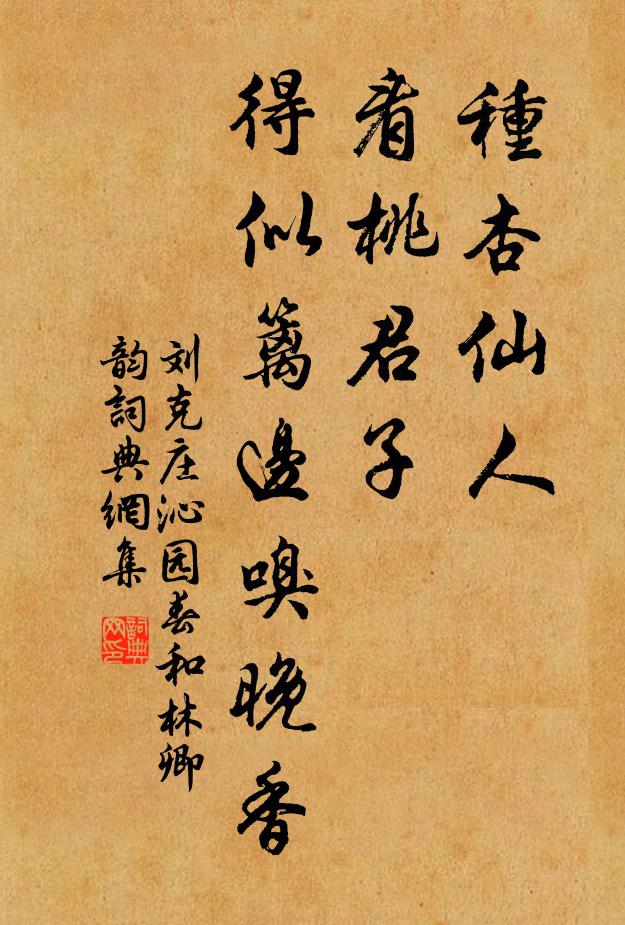 種杏仙人
看桃君子
得似籬邊嗅晚香
刘克庄沁园春和林卿
韵詞典網集
詞典
网印